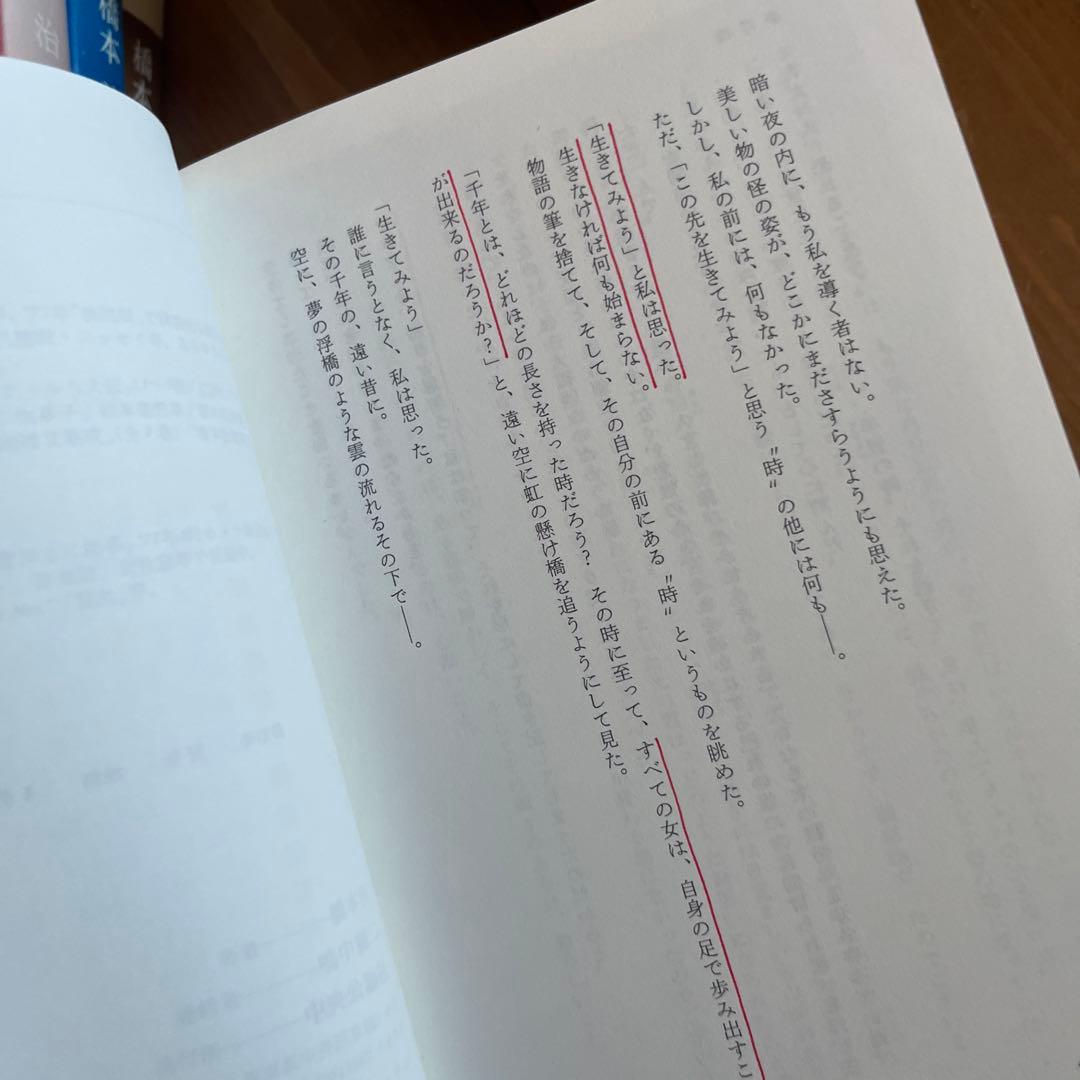 治
橋本
橋本
暗い夜の内に、もう私を導く者はない。
美しい物の怪の姿が、どこかにまださすらうようにも思えた。
しかし、私の前には、何もなかった。
ただ、「この先を生きてみよう」と思う〝時〟の他には何も――。
「生きてみよう」と私は思った。
生きなければ何も始まらない。
物語の筆を捨てて、そして、その自分の前にある〝時〟というものを眺めた。
「千年とは、どれほどの長さを持った時だろう? その時に至って、すべての女は、自身の足で歩み出すこ
が出来るのだろうか?」と、遠い空に虹の懸け橋を追うようにして見た。
「生きてみよう」
誰に言うとなく、私は思った。
その千年の、遠い昔に。
空に、夢の浮橋のような雲の流れるその下で――。